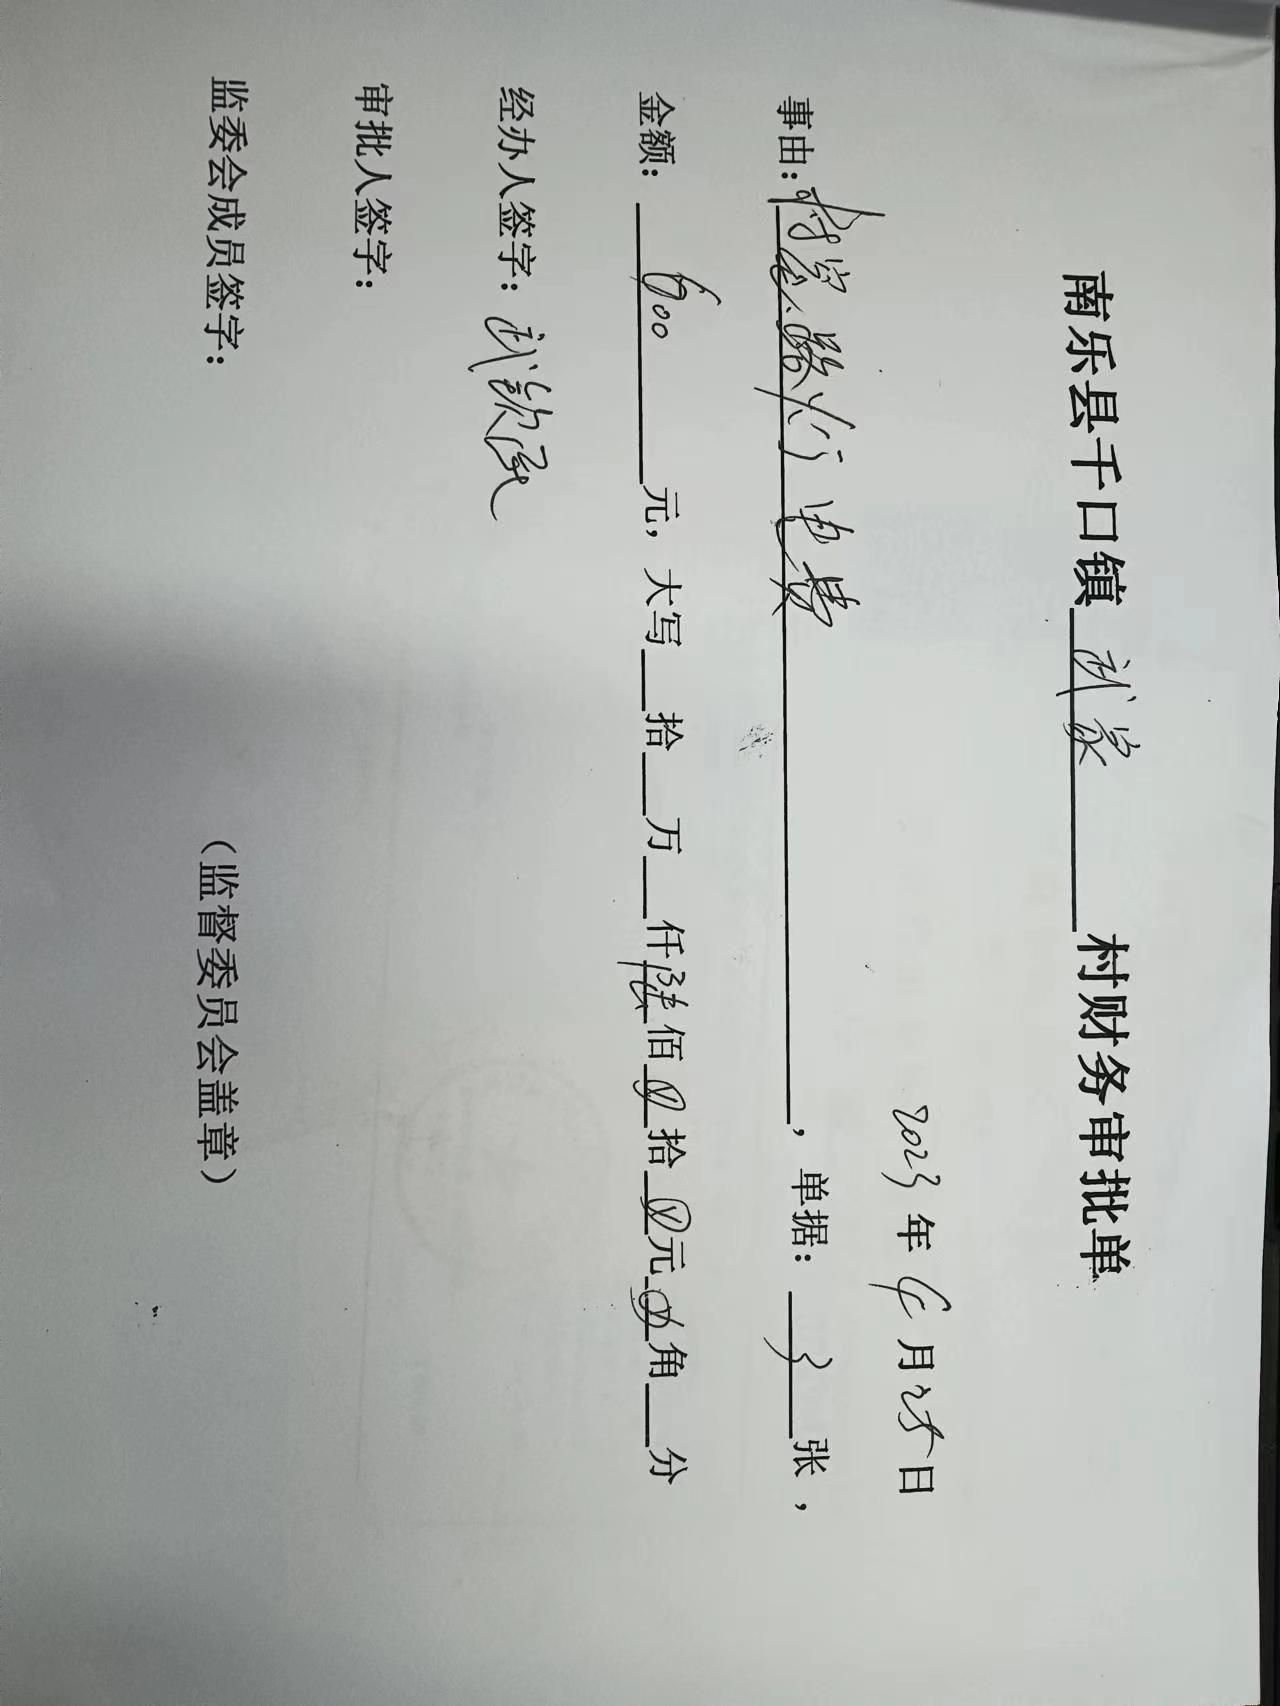 南乐县千口镇 武家 村财务审批单
2023年4月25日
事由：村室、路灯电费，单据：3张，
金额：600元，大写 拾 万 仟陆佰⊗拾⊗元⊗角 分
经办人签字：武
审批人签字：
监委会成员签字：
（监督委员会盖章）